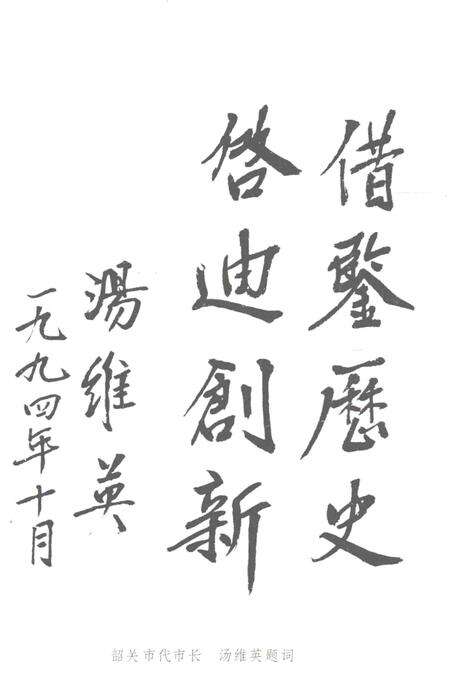 借鑒歷史
啓迪創新
湯維英
一九九四年十月
韶关市代市长 汤维英题词